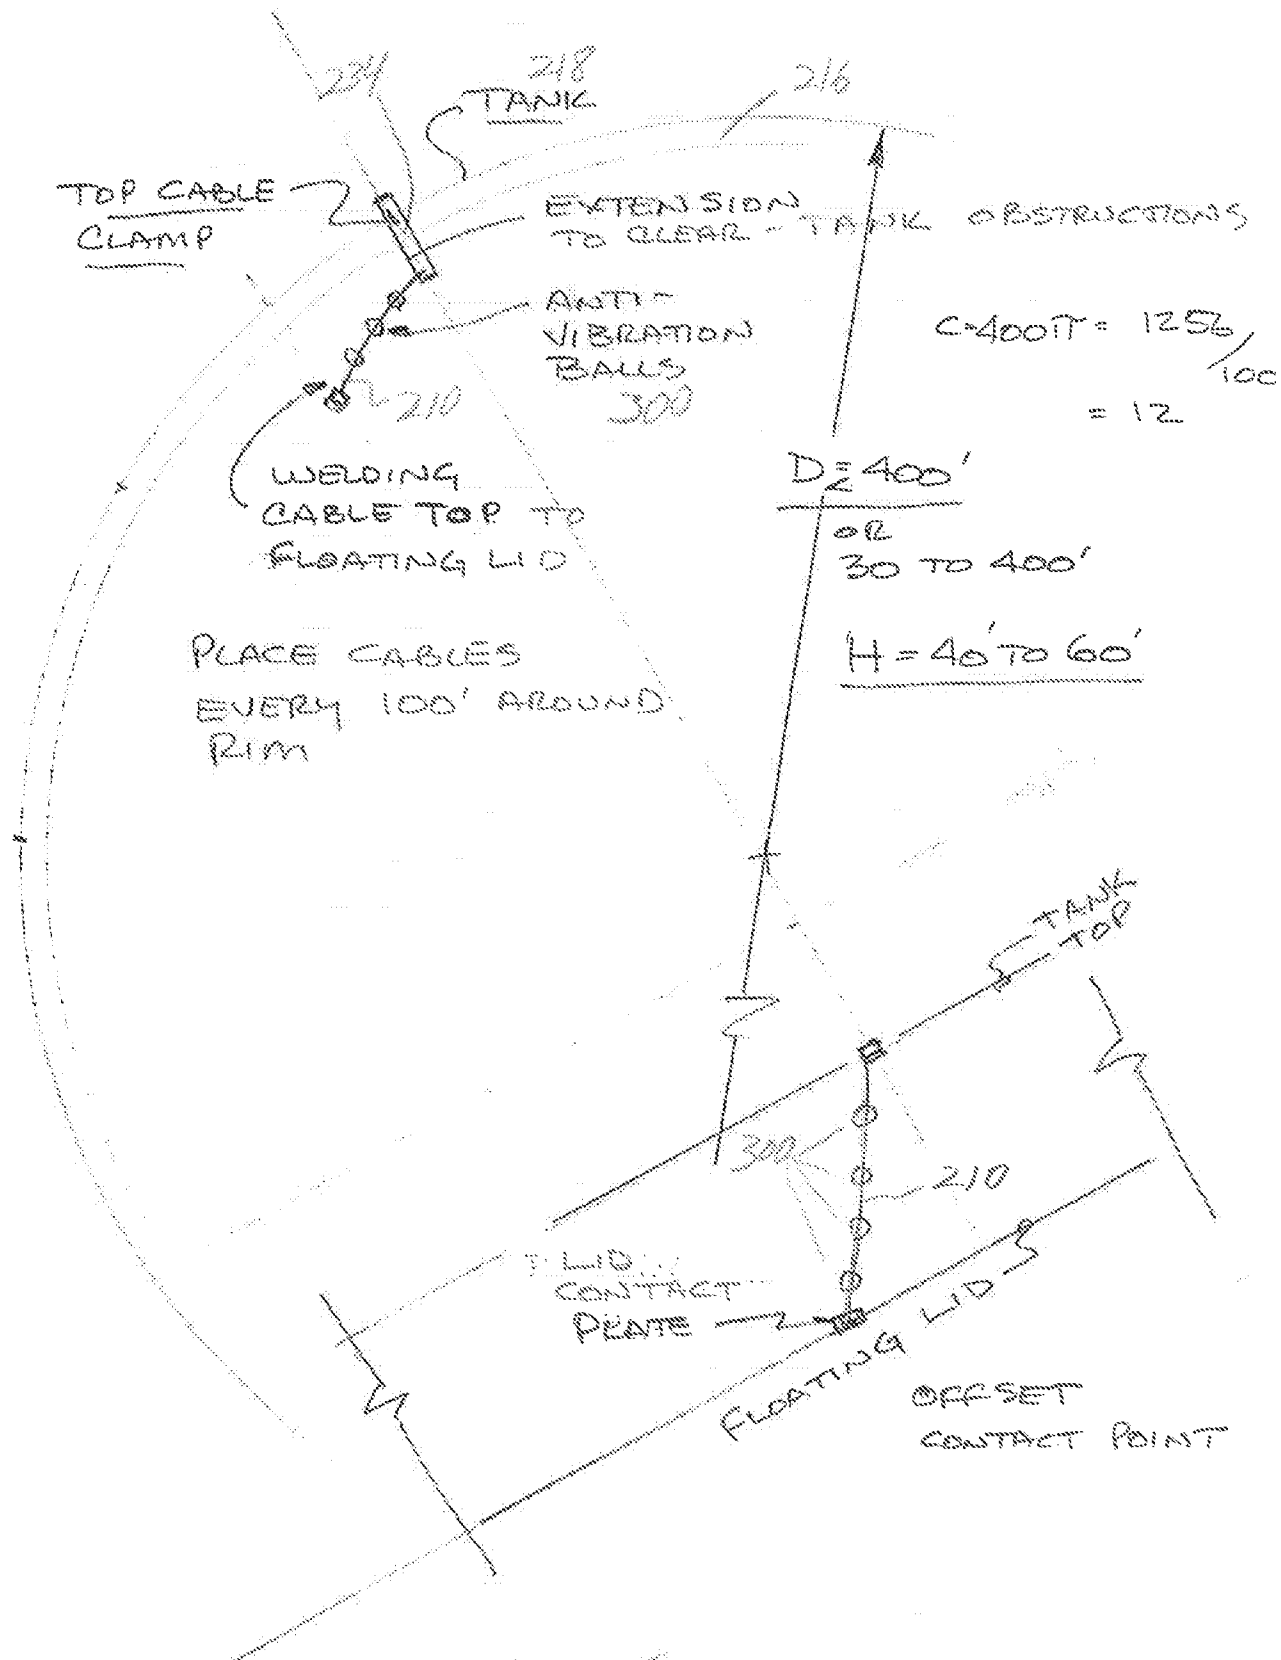 234
218
TANK
216
TOP CABLE
CLAMP
EXTENSION
TO CLEAR - TANK OBSTRUCTIONS
ANTI-
VIBRATION
BALLS
300
210
C=400π = 1256/100
= 12
WELDING
CABLE TOP TO
FLOATING LID
D≤400'
OR
30 TO 400'
H = 40' TO 60'
PLACE CABLES
EVERY 100' AROUND
RIM
TANK
TOP
300
210
LID
CONTACT
PLATE
FLOATING LID
OFFSET
CONTACT POINT